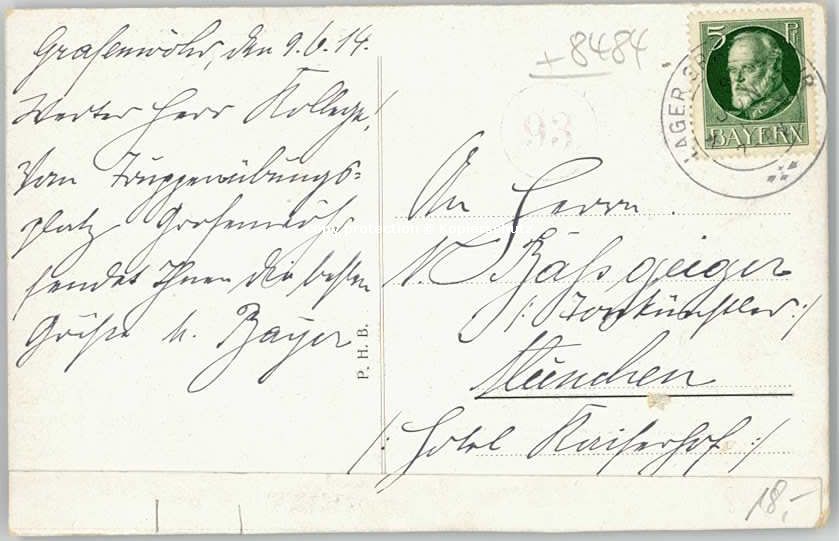 Grafenwöhr, den 9.6.14.
Werter Herr Kollege!
Vom Truppenübungs-
platz Grafenwöhr
sendet Ihnen die besten
Grüße H. Bayer
P. H. B.
+8484
93
5 Pf
BAYERN
LAGER GR
An Herrn
Baßgeiger
/: Tonkünstler :/
München
/: Hotel Kaiserhof :/
copy protection & Kopierschutz
18,-